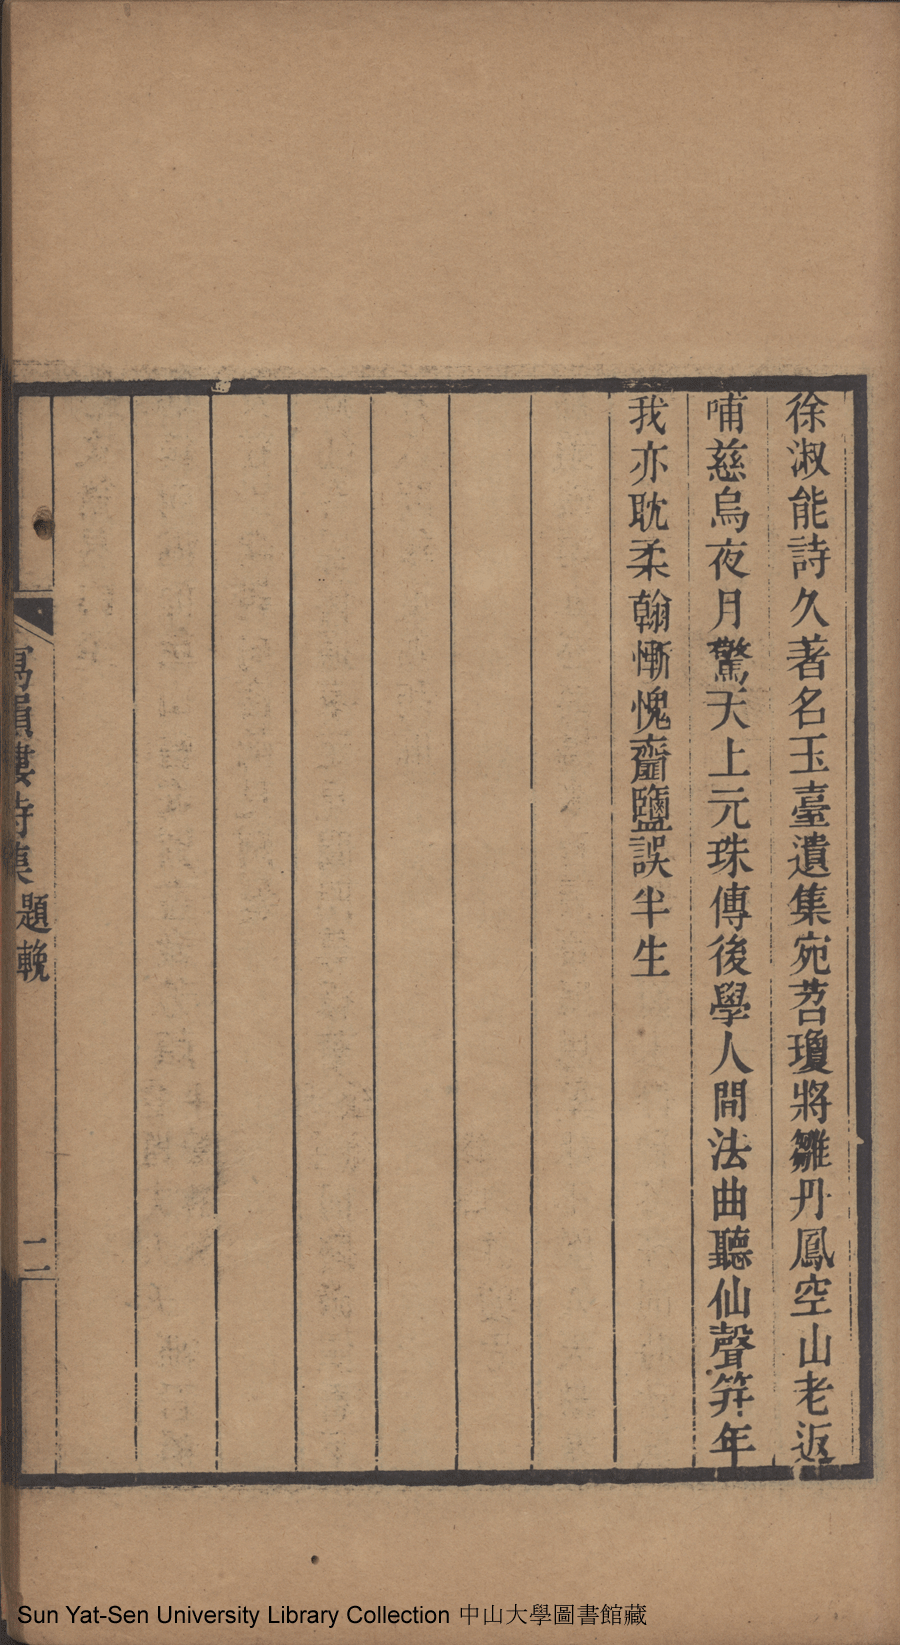 徐淑能詩久著名玉臺遺集宛苕瓊將雛丹鳳空山老返
哺慈烏夜月驚天上元珠傳後學人間法曲聽仙聲笄年
我亦耽柔翰慚愧齏鹽誤半生
寫韻樓詩集 題輓 二
Sun Yat-Sen University Library Collection 中山大學圖書館藏